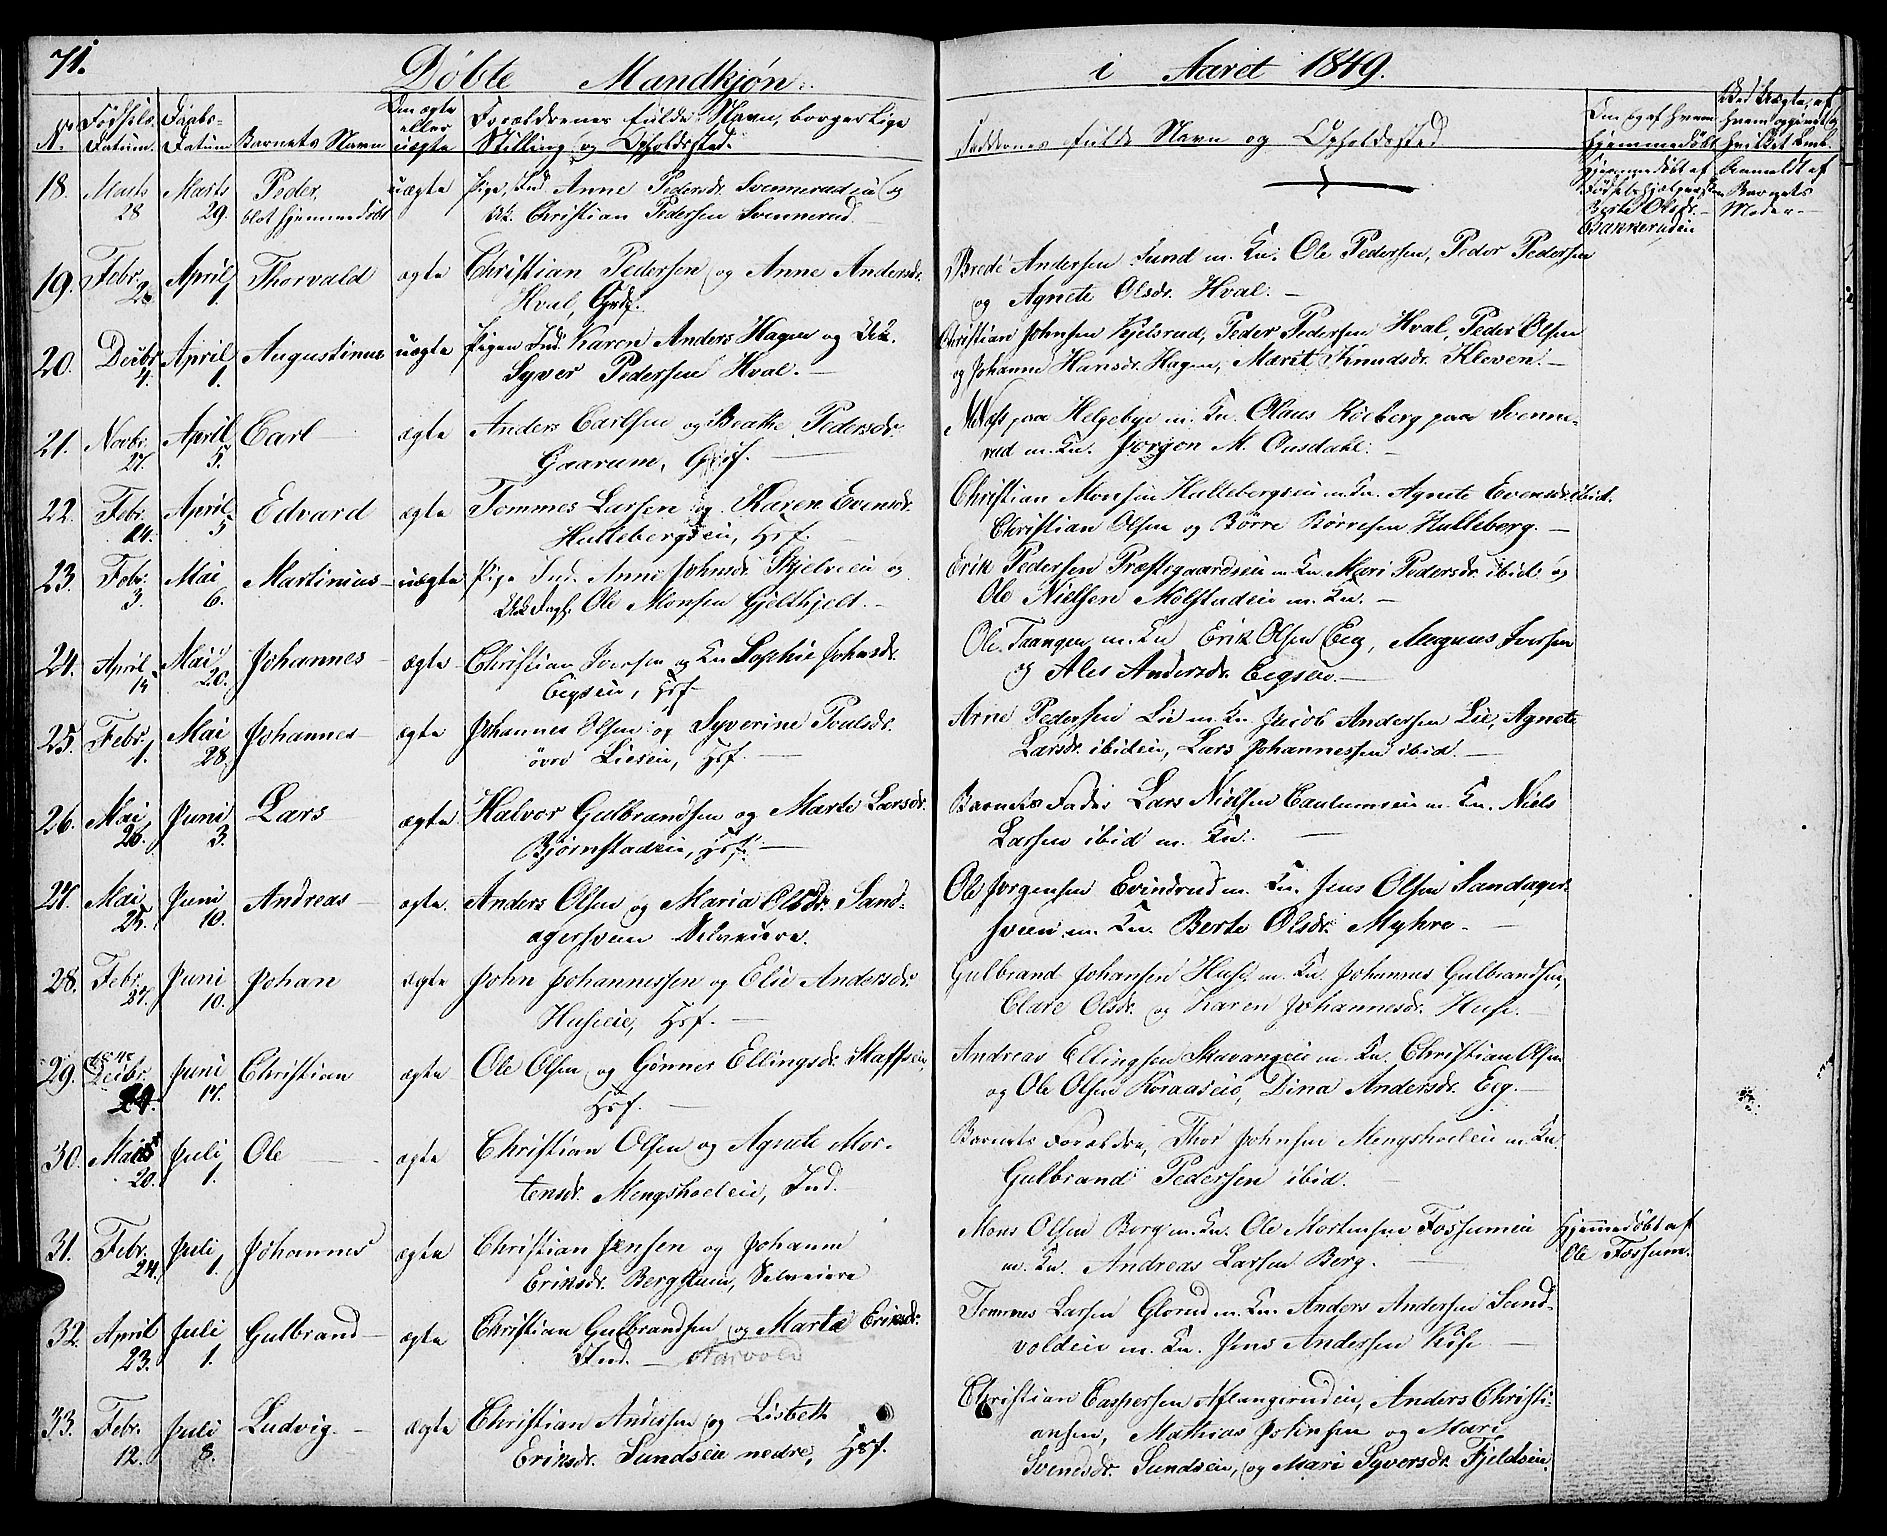 71.
Döbte Mandkjön.
i Aaret 1849.
No. Födsels-Datum. Daabs-Datum Barnets Navn Om ægte eller uægte Forældrenes fulde Navn, borgerlige Stilling og Opholdssted.
Faddernes fulde Navn og Opholdssted
Om og af hvem hjemmedöbt
18. Marts 28 Marts 29. Peder, uægte Pige, Ind. Anne Pedersdr. Svennerudeie og
blot hjemmedöbt Uk. Christian Pedersen Svennerud.
Hjemmedöbt af
Födselshjelpersken
Berte Olsdr.
Bakkerudeie
Anmeldt af
Barnets
Moder.
19. Febr. 26 April 1. Thorvald ægte Christian Pedersen og Anne Andersdr.
Hval, Grdf.
Brede Andersen Sund m. Kn. Ole Pedersen, Peder Pedersen
og Agnete Olsdr. Hval.
20. Decbr. 4. April 1. Augustinus uægte Pigen Ind. Karen Anders Hagen og Uk.
Syver Pedersen Hval.
Christian Johnsen Kjelsrud, Peder Pedersen Hval, Peder Olsen
og Johanne Hansdr. Hagen, Marit Knudsdr. Kleven.
21. Novbr. 27. April 5. Carl ægte Anders Carlsen og Beathe Pedersdr.
Gaarum, Grdf.
Næss paa Helgebye m. Kn. Olaus Kieberg paa Svenne-
rud m. Kn. Jörgen M. Ousdahl.
22. Febr. 24. April 5 Edvard ægte Tommes Larsen og Karen Evensdr.
Hullebergseie, Hsf.
Christian Monsen Hullebergseie m. Kn. Agnete Evensdr. ibid.
Christian Olsen og Börre Börresen Hulleberg.
23. Febr. 3. Mai 6. Martinius uægte Pige Ind. Anne Johnsdr. Skjelveie og
Uk. Dagf. Ole Monsen Gjelthjelt.
Erik Pedersen Præstegaardseie m. Kn. Mari Pedersdr. ibid. og
Ole Nielsen Molstadeie m. Kn.
24. April 15 Mai 20. Johannes ægte Christian Iversen og Kn Sophie Johnsdr.
Eegseie, Hsf.
Ole Taangen m. Kn Erik Olsen Eeg, Magnus Iversen
og Ales Andersdr. Eegseie.
25. Febr. 1. Mai 28. Johannes ægte Johannes Olsen og Syverine Poulsdr.
övre Lieseie, Hsf.
Arne Pedersen Lie m. Kn. Jacob Andersen Lie, Agnete
Larsdr. ibideie, Lars Johannessen ibid.
26. Mai 26. Juni 3. Lars ægte Halvor Gulbrandsen og Marte Larsdr.
Björnstadeie, Hsf.
Barnets Fader Lars Nielsen Caulumseie m. Kn. Niels
Larsen ibid m. Kn.
27. Mai 25. Juni 10. Andreas ægte. Anders Olsen og Maria Olsdr. Sand-
agersveen Selveiere.
Ole Jörgensen Evindrud m. Kn. Jens Olsen Sandager-
sveen m. Kn. Berte Olsdr. Myhre.
28. Febr. 27. Juni 10. Johan ægte John Johannessen og Elie Andersdr.
Huseeie, Hsf.
Gulbrand Johansen Huse m. Kn Johannes Gulbrandsen,
Clare Olsdr. og Karen Johannesdr. Huse.
29. Decbr. 24. Juni 17. Christian ægte Ole Olsen og Gönner Ellingsdr. Staffseie,
Hsf.
Andreas Ellingsen Skavangeie m. Kn. Christian Olsen
og Ole Olsen Koraaseie, Dina Andersdr. Eeg.
30. Mai 20. Juli 1. Ole ægte Christian Olsen og Agnete Mor-
tensdr. Mengshoeleie, Ind.
Barnets Forældre, Thor Johnsen Mengshoeleie m. Kn
Gulbrand Pedersen ibid.
31. Febr. 24. Juli 1. Johannes ægte Christian Jensen og Johanne
Eriksdr. Bergsteen, Selveiere
Mons Olsen Berg m. Kn. Ole Mortensen Fossumeie
m. Kn. Andreas Larsen Berg.
Hjemmedöbt af
Ole Fossum.
32. April 23. Juli 1. Gulbrand ægte Christian Gulbrandsen og Marta Eriksdr.
Ind.
Tommes Larsen Glorud m. Kn Anders Andersen Sand-
voldeie m. Kn. Jens Andersen Kise
33. Febr. 12. Juli 8. Ludvig. ægte Christian Andersen og Lisbeth
Eriksdr. Sundseie nedre, Hsf.
Christian Caspersen Aslangerudeie, Anders Christi-
ansen, Mathias Johnsen og Mari
Svendsdr. Sundseie, og Mari Syversdr. Fjeldseie.